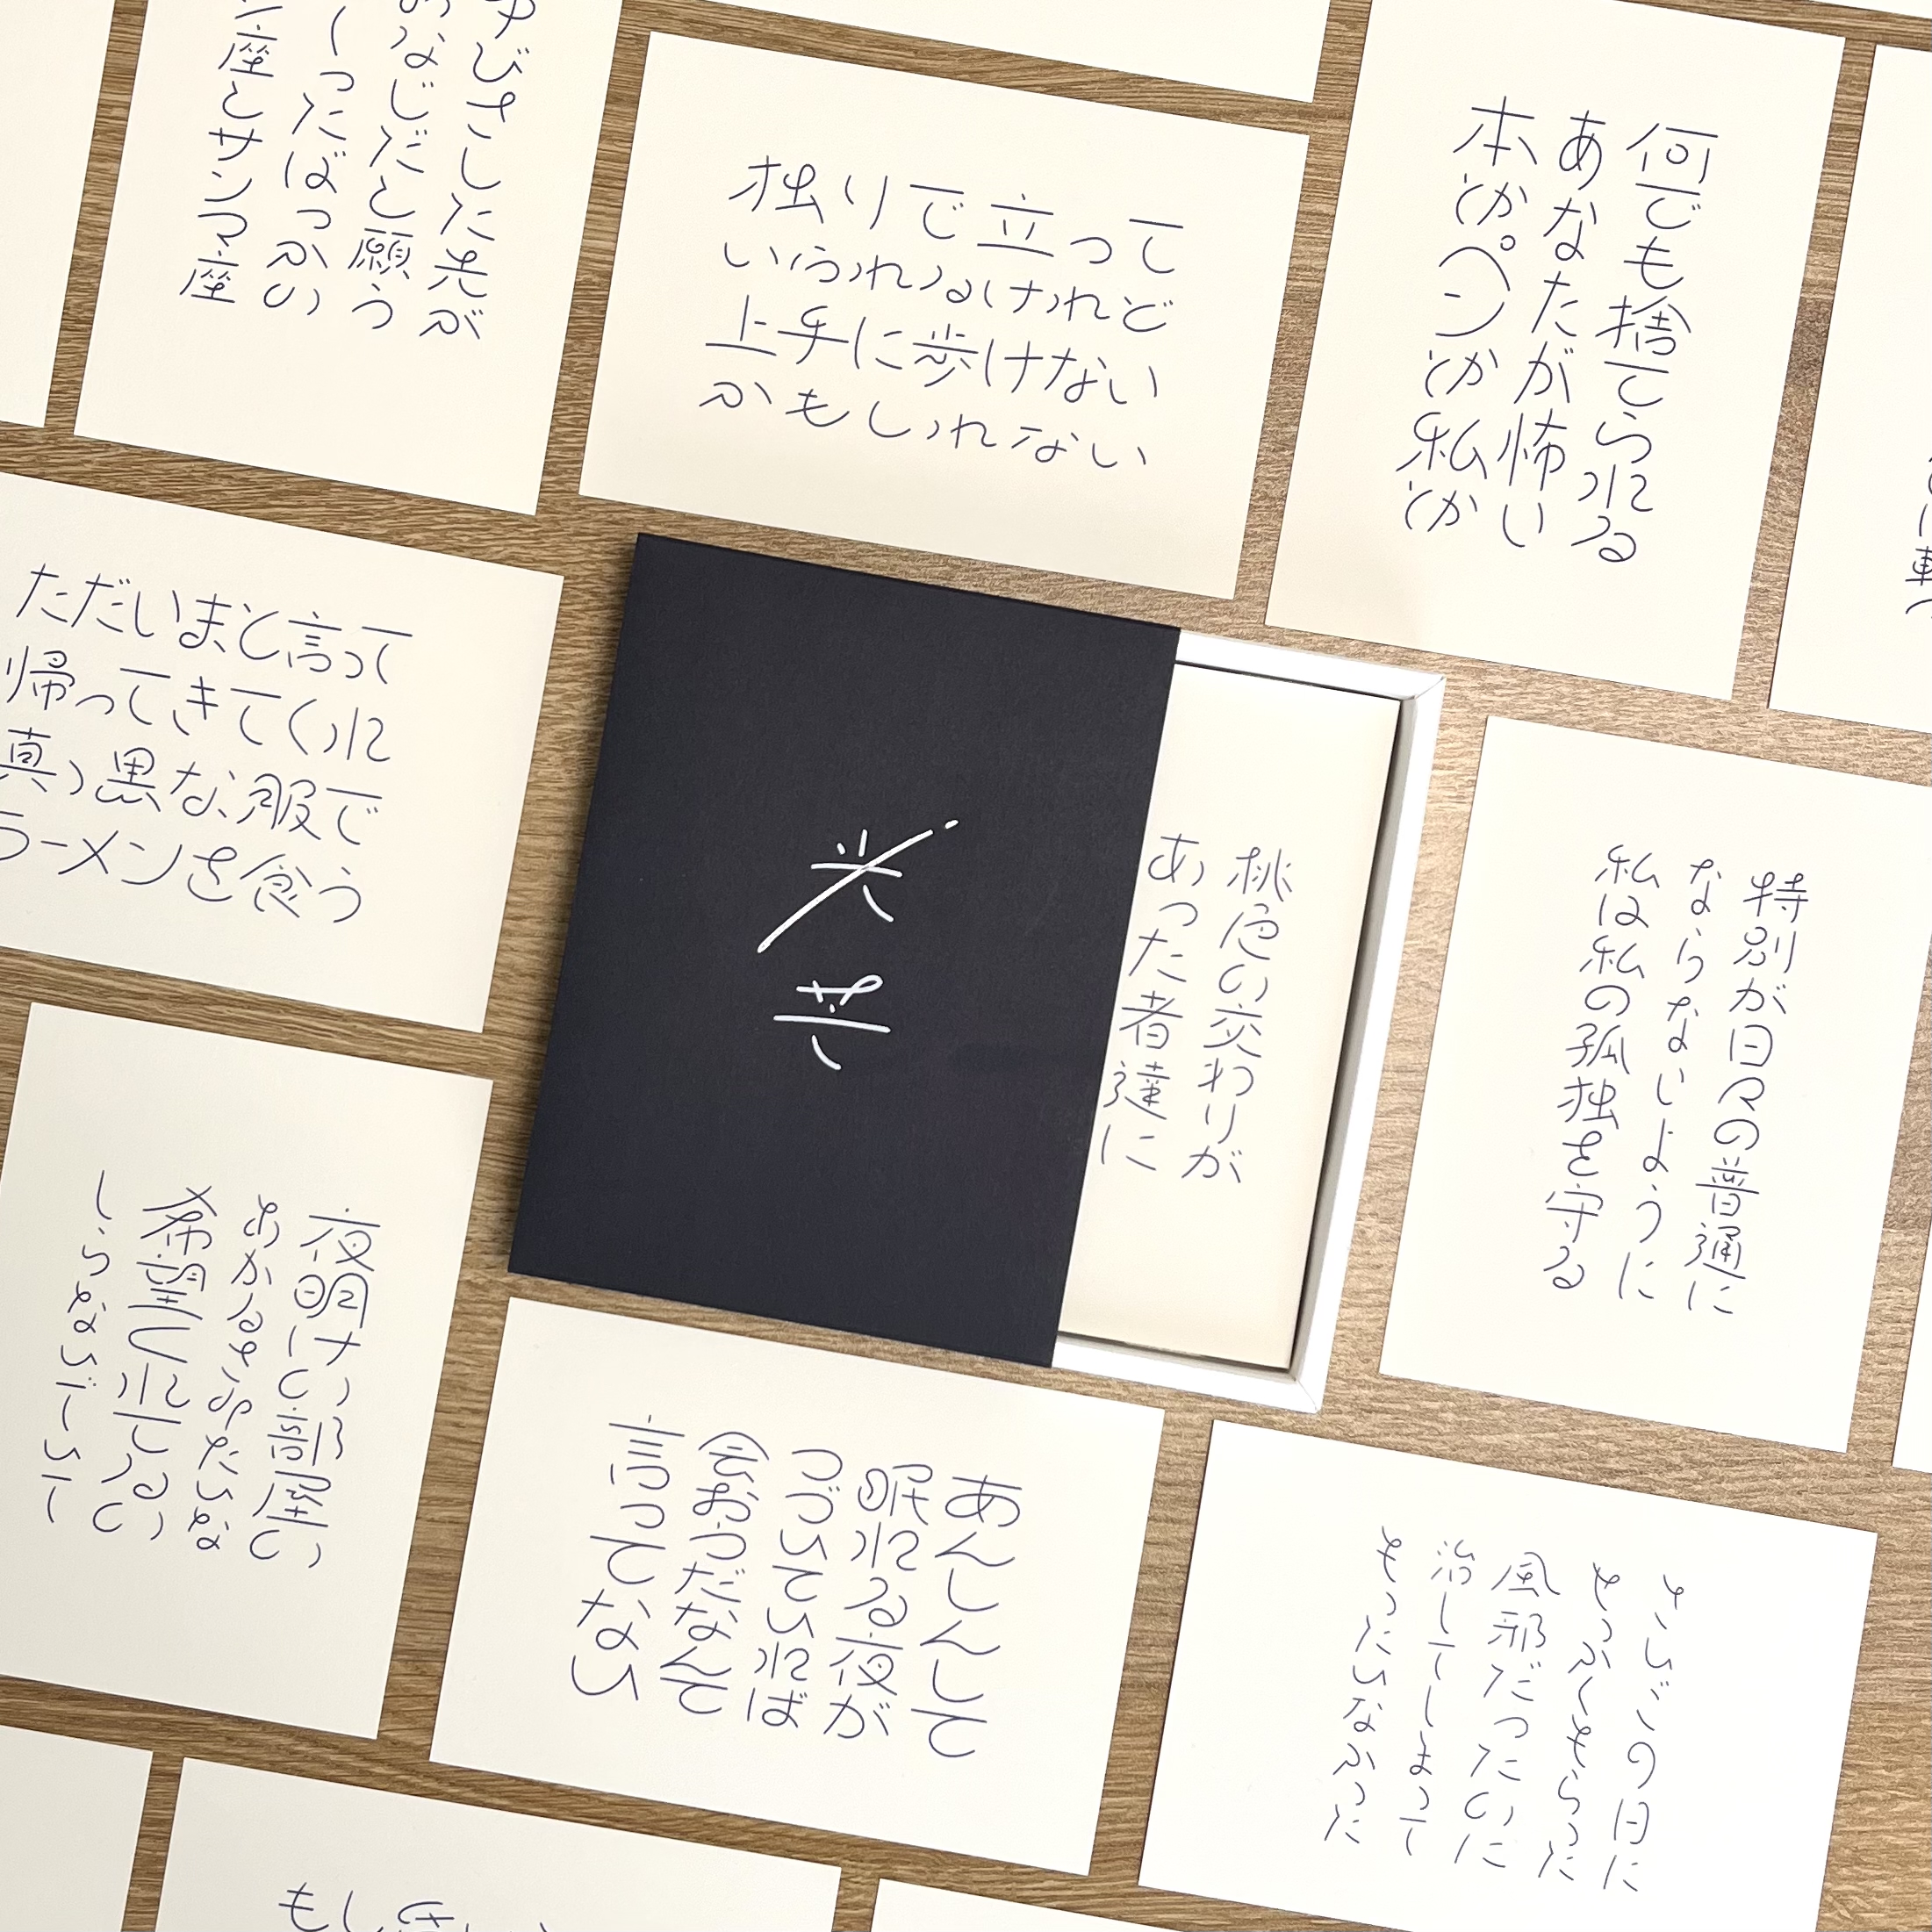 ゆびさした先が
おなじだと願う
しったばっかの
ン座とサンマ座
独りで立って
いられるけれど
上手に歩けない
かもしれない
何でも捨てられる
あなたが怖い
本とかペンとか私とか
ただいまと言って
帰ってきてくれ
真っ黒な服で
ラーメンを食う
桃色の交わりが
あった者達に
特別が日々の普通に
ならないように
私は私の孤独を守る
夜明けの部屋の
あかるさみたいな
希望しれてるの
しらないでいて
あんしんして
眠れる夜が
つづいていれば
会おうだなんて
言ってない
さいごの日に
せっかくもらった
風邪だったのに
治してしまって
もったいなかった
もし